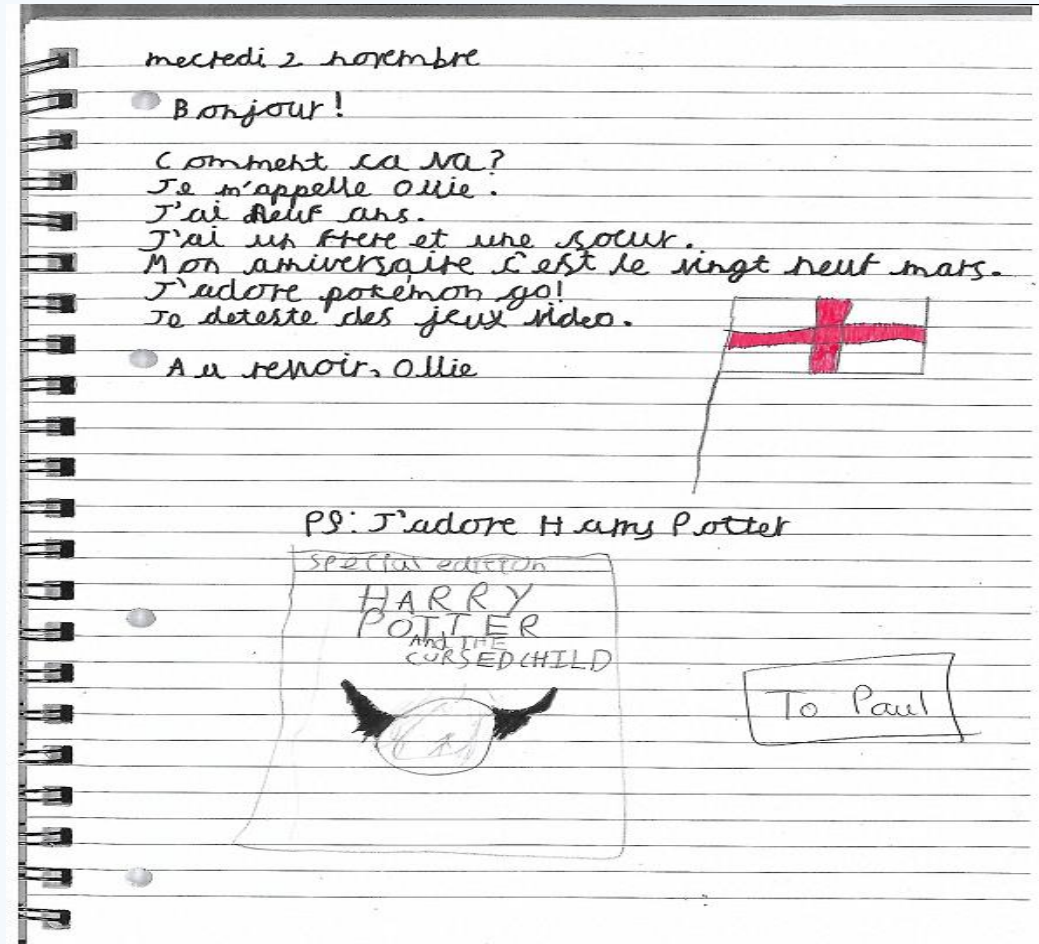 mecredi 2 novembre
Bonjour!
Comment ca va?
Je m'appelle Ollie.
J'ai neuf ans.
J'ai un frere et une soeur.
Mon anniversaire c'est le vingt neuf mars.
J'adore pokémon go!
Je deteste des jeux video.
Au revoir, Ollie
PS: J'adore Harry Potter
special edition
HARRY
POTTER
And THE
CURSED CHILD
To Paul